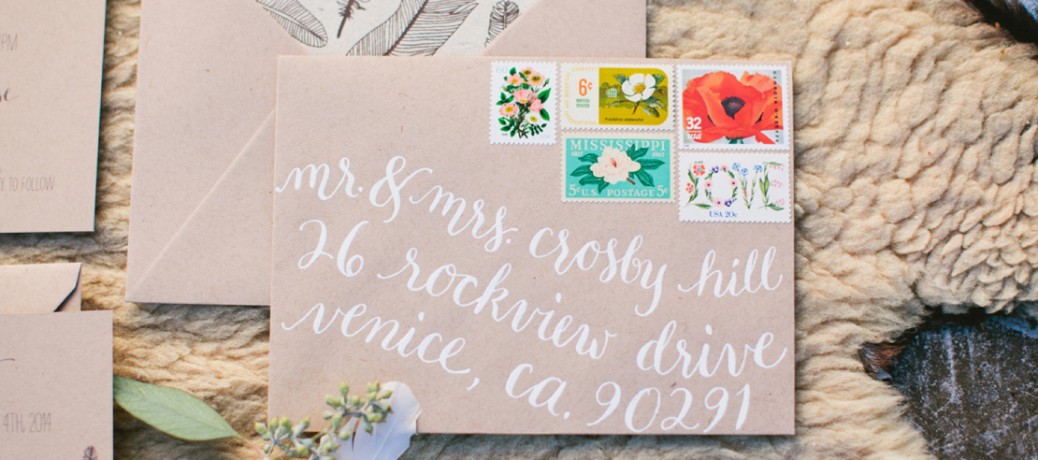 PM
Y TO FOLLOW
4TH, 2014
6¢
32
USA
MISSISSIPPI
5¢ U.S. POSTAGE 5¢
LOVE
USA 20c
mr. & mrs. crosby hill
26 rockview drive
venice, ca. 90291